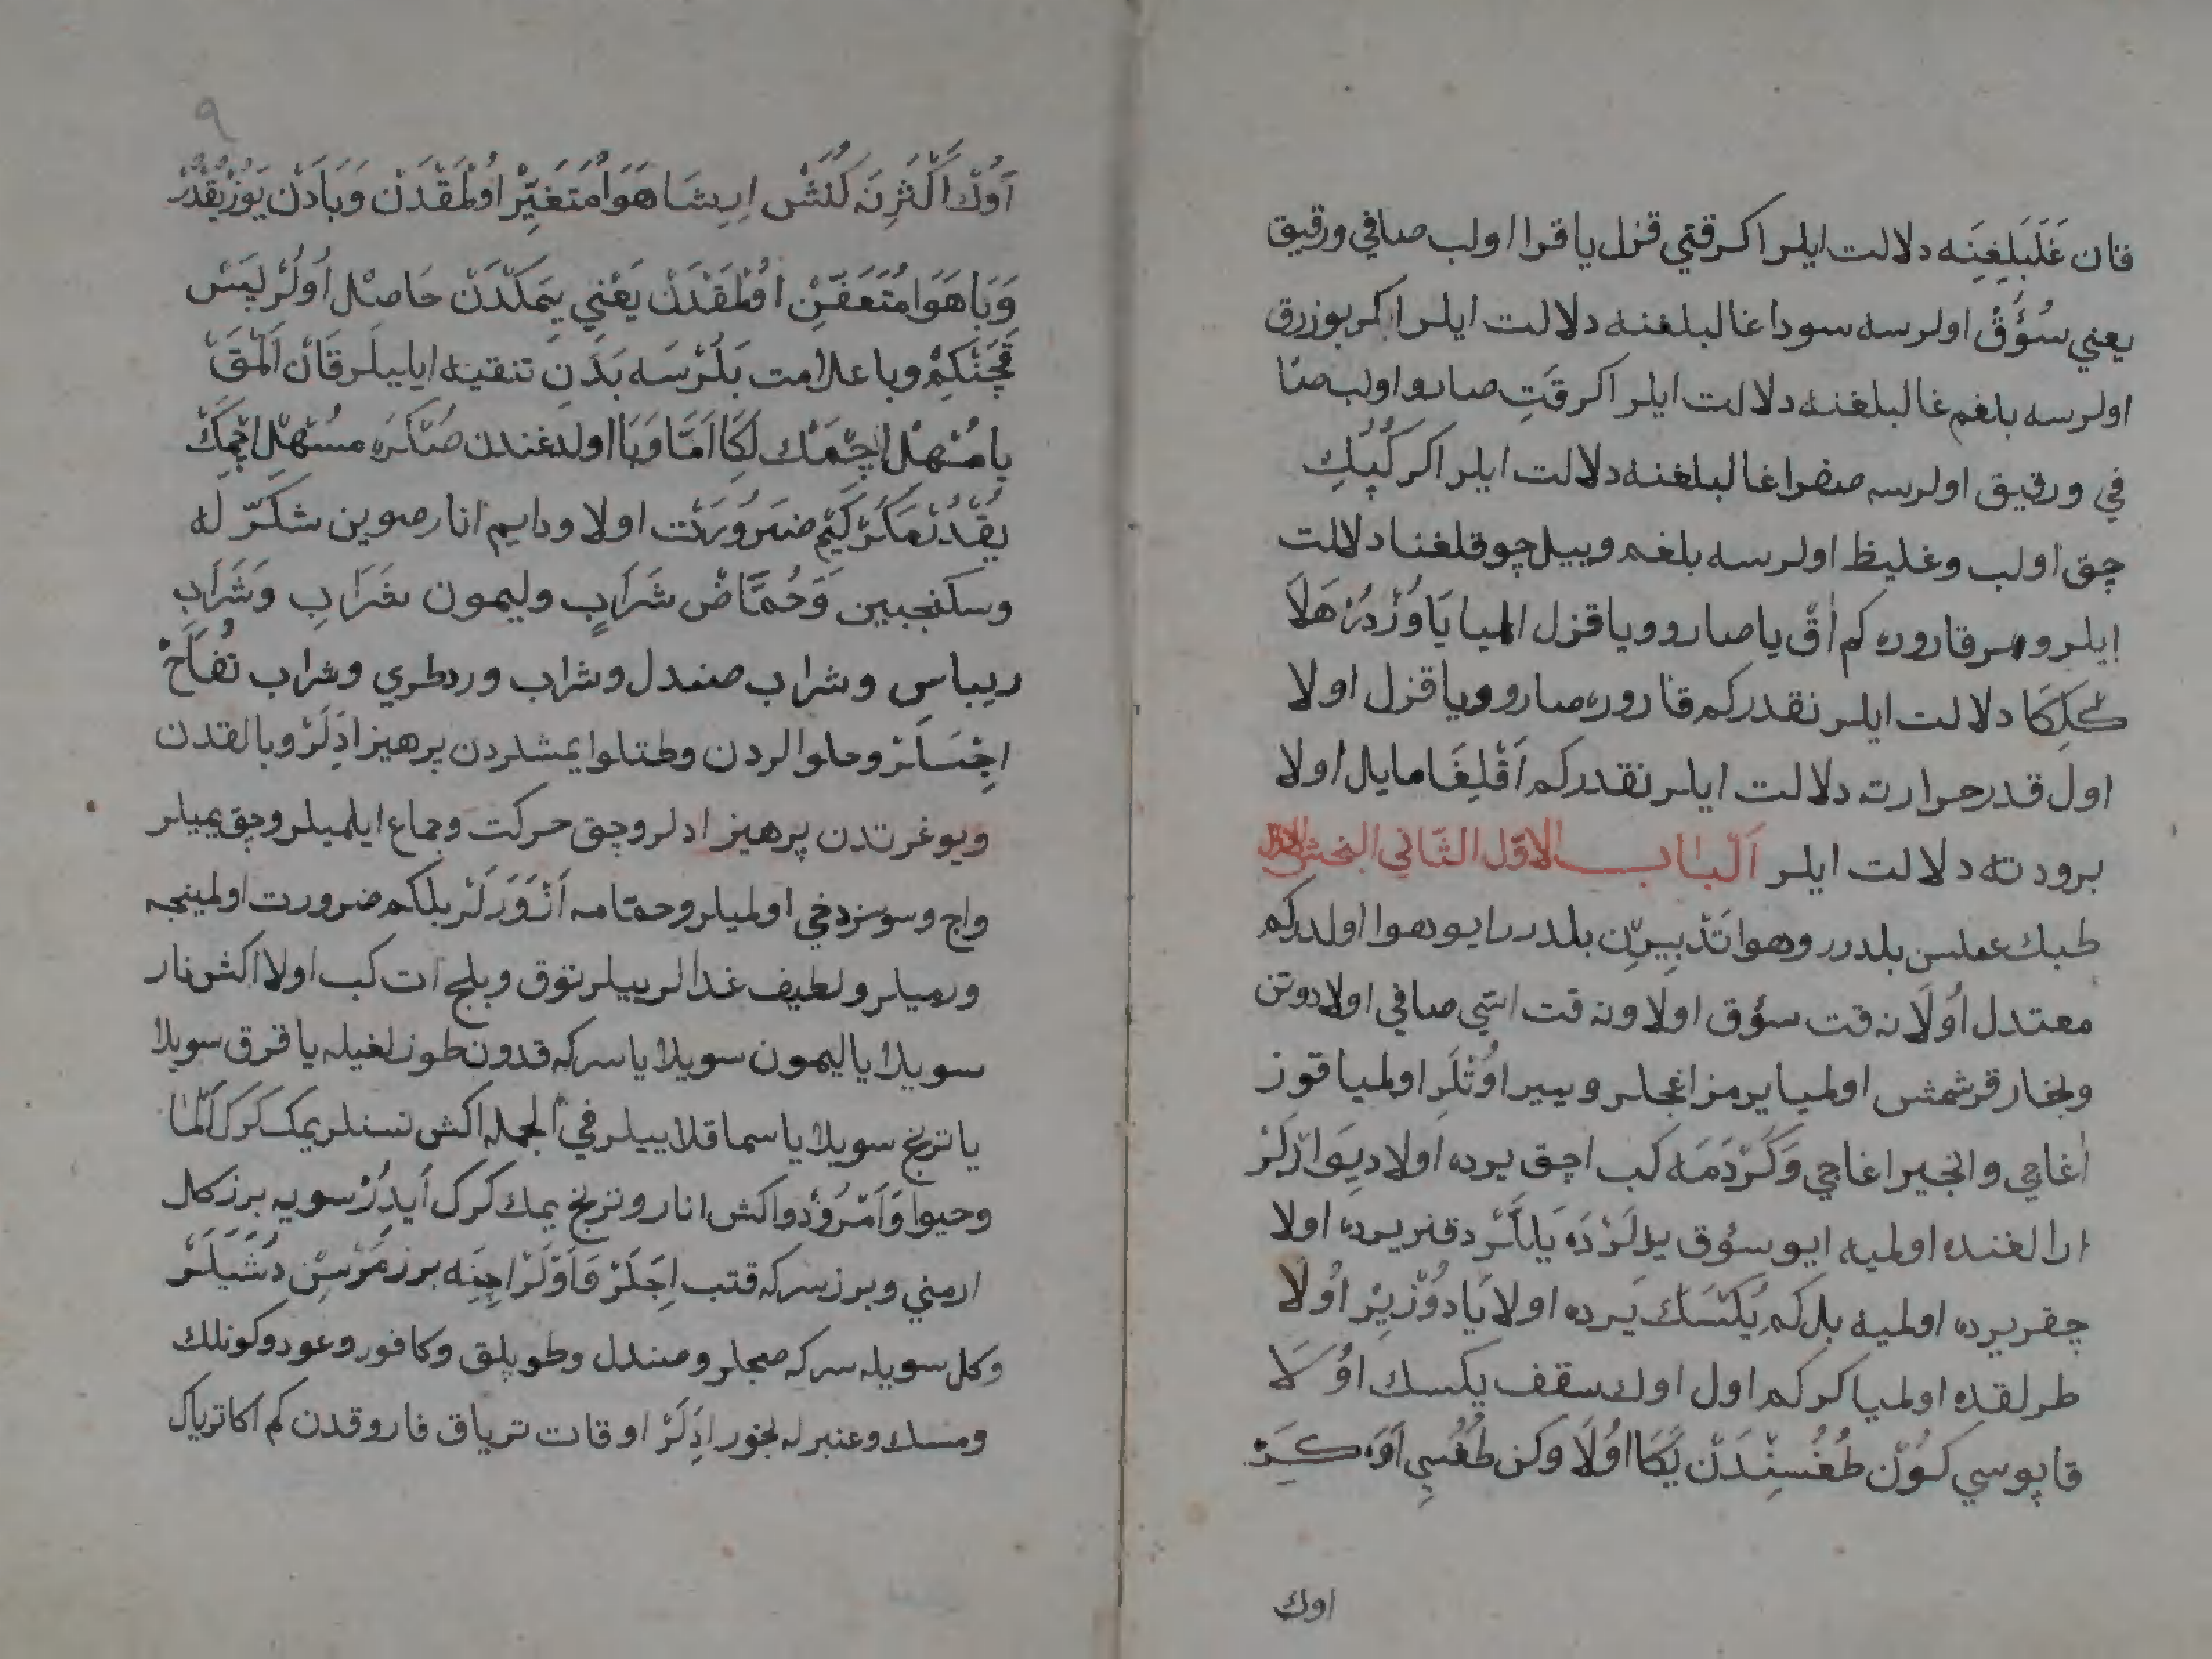 قان غَلَبَلِغِنَه دلالت ايلر اكر قتي قزل يا قرا اولب صافي و رقيق
يعني سُؤُقْ اولرسه سودا غالبلغنه دلالت ايلر اكر بوزرق
اولرسه بلغم غالبلغنه دلالت ايلر اكر قَتِ صارو اولب صا
في و رقيق اولرسه صفرا غالبلغنه دلالت ايلر اكر كُپُكِ
چق اولب و غليظ اولرسه بلغم و ييل چوقلغنا دلالت
ايلر و هر قاروره كم اٰقْ يا صارو و يا قزل المیا يَاوُزْدُرْ هَلَا
كَلِكَا دلالت ايلر نقدركم قاروره صارو و يا قزل اولا
اول قدر حرارته دلالت ايلر نقدركم اَقْلِغَا مايل اولا
برودته دلالت ايلر اَلْبَاب الاوّل الثّاني البخش الاوّل
طبك عملسن بلدرر و هوا تَدْبِيرِن بلدرر ايو هوا اولدركم
معتدل اُولَا نه قت سؤق اولا و نه قت اسّي صافي اولا دوتن
و بخار قرشمش اولميا يرمز اغجلر و يير اوُتْلَر اولميا قوز
اغاجي و انجير اغاجي وَكَرْدَمَه كب اچق يرده اولا دِيوَارْلَرْ
ارالغنده اولميه ايو سؤق يِلْلَرْدَه يَايْلَلَرْده قنر يرده اولا
چقر يرده اولميه بل كم يُكْسَك يَرده اولا يَا دُوزْ يِيْر اُولَا
طرلقده اولميا كركم اول اوك سقف يكسك اوُلَا
قاپوسي كُوْن طُغُسِنْدَنْ يَكَا اوُلَا و كن طُغُسِي اَوَه كِرَ
اوك
٩
اَوُكْ اَكْثَرِنَه كُنَشْ ايِشَا هَوَا مُتَغَيِّرْ اوُلْمَقْدَنْ وَبَادَنْ يَوُزْيقْدُرْ
وَبَا هَوَا مُتَعَفِّنْ اوُلْمَقْدَنْ يَعْنِي يمَكْدَنْ حَاصِل اُولُرْ لِيَسْ
قَچَنْكِمْ وبا علامت بَلُرْسَه بَدَنِ تنقيه ايليلَر قَانْ اَلْمَقْ
يا مُسْهِلْ اچْمَكْ لكَا اَمَّا وَبَا اولدغندن صُكْرَه مسْهِلْ اچْمَكْ
يُقْدُرْ مَكَرْ كِيمْ ضَرُورَتْ اولا و دايم انار صوين شكّرله
و سكنجبين وَحُمَّاضْ شَرَابِ و ليمون شَرَابِ وَشَرَابِ
ريباس و شراب صندل و شراب ورد طري و شراب تُفَاحْ
اِچْسَلَرْ و حلوالردن و طتلو ايمشلردن پرهيز ادَلَرْ و بالقدن
و يوغرتدن پرهيز ادلر و چق حركت و جماع ايلميلر و چق يميلر
و اج و سوسز دخي اولميلر و حمّامه اَزْ وَرَلَرْ بلكم ضرورت اولمينجه
ورميلر و لطيف غدالر ييلر توق و پلج ات كب اولا اكشي نار
سويلا يا ليمون سويلا يا سركه قدون طوزلغيله يا قرق سويلا
يا ترنج سويلا يا سماقلا ييلر في الجمله اكش نسنلر يمك كرك اَلْمَا
و حيوا وَاَمْرُوْدُ و اكش انار و ترنج يمك كرك اَيدُرْ سويه برز كل
ارمني و برز سركه قتب اِچَلَرْ وَاَوْلَرْ اِچِنَه برز مَرْسِنْ دُشَيلَرْ
و كل سويله سركه صچلر و صندل و طوپلق و كافور و عود و كونلك
و مسك و عنبرله بخور ادَلَرْ اوقات ترياق فاروقدن كم اكا ترياك